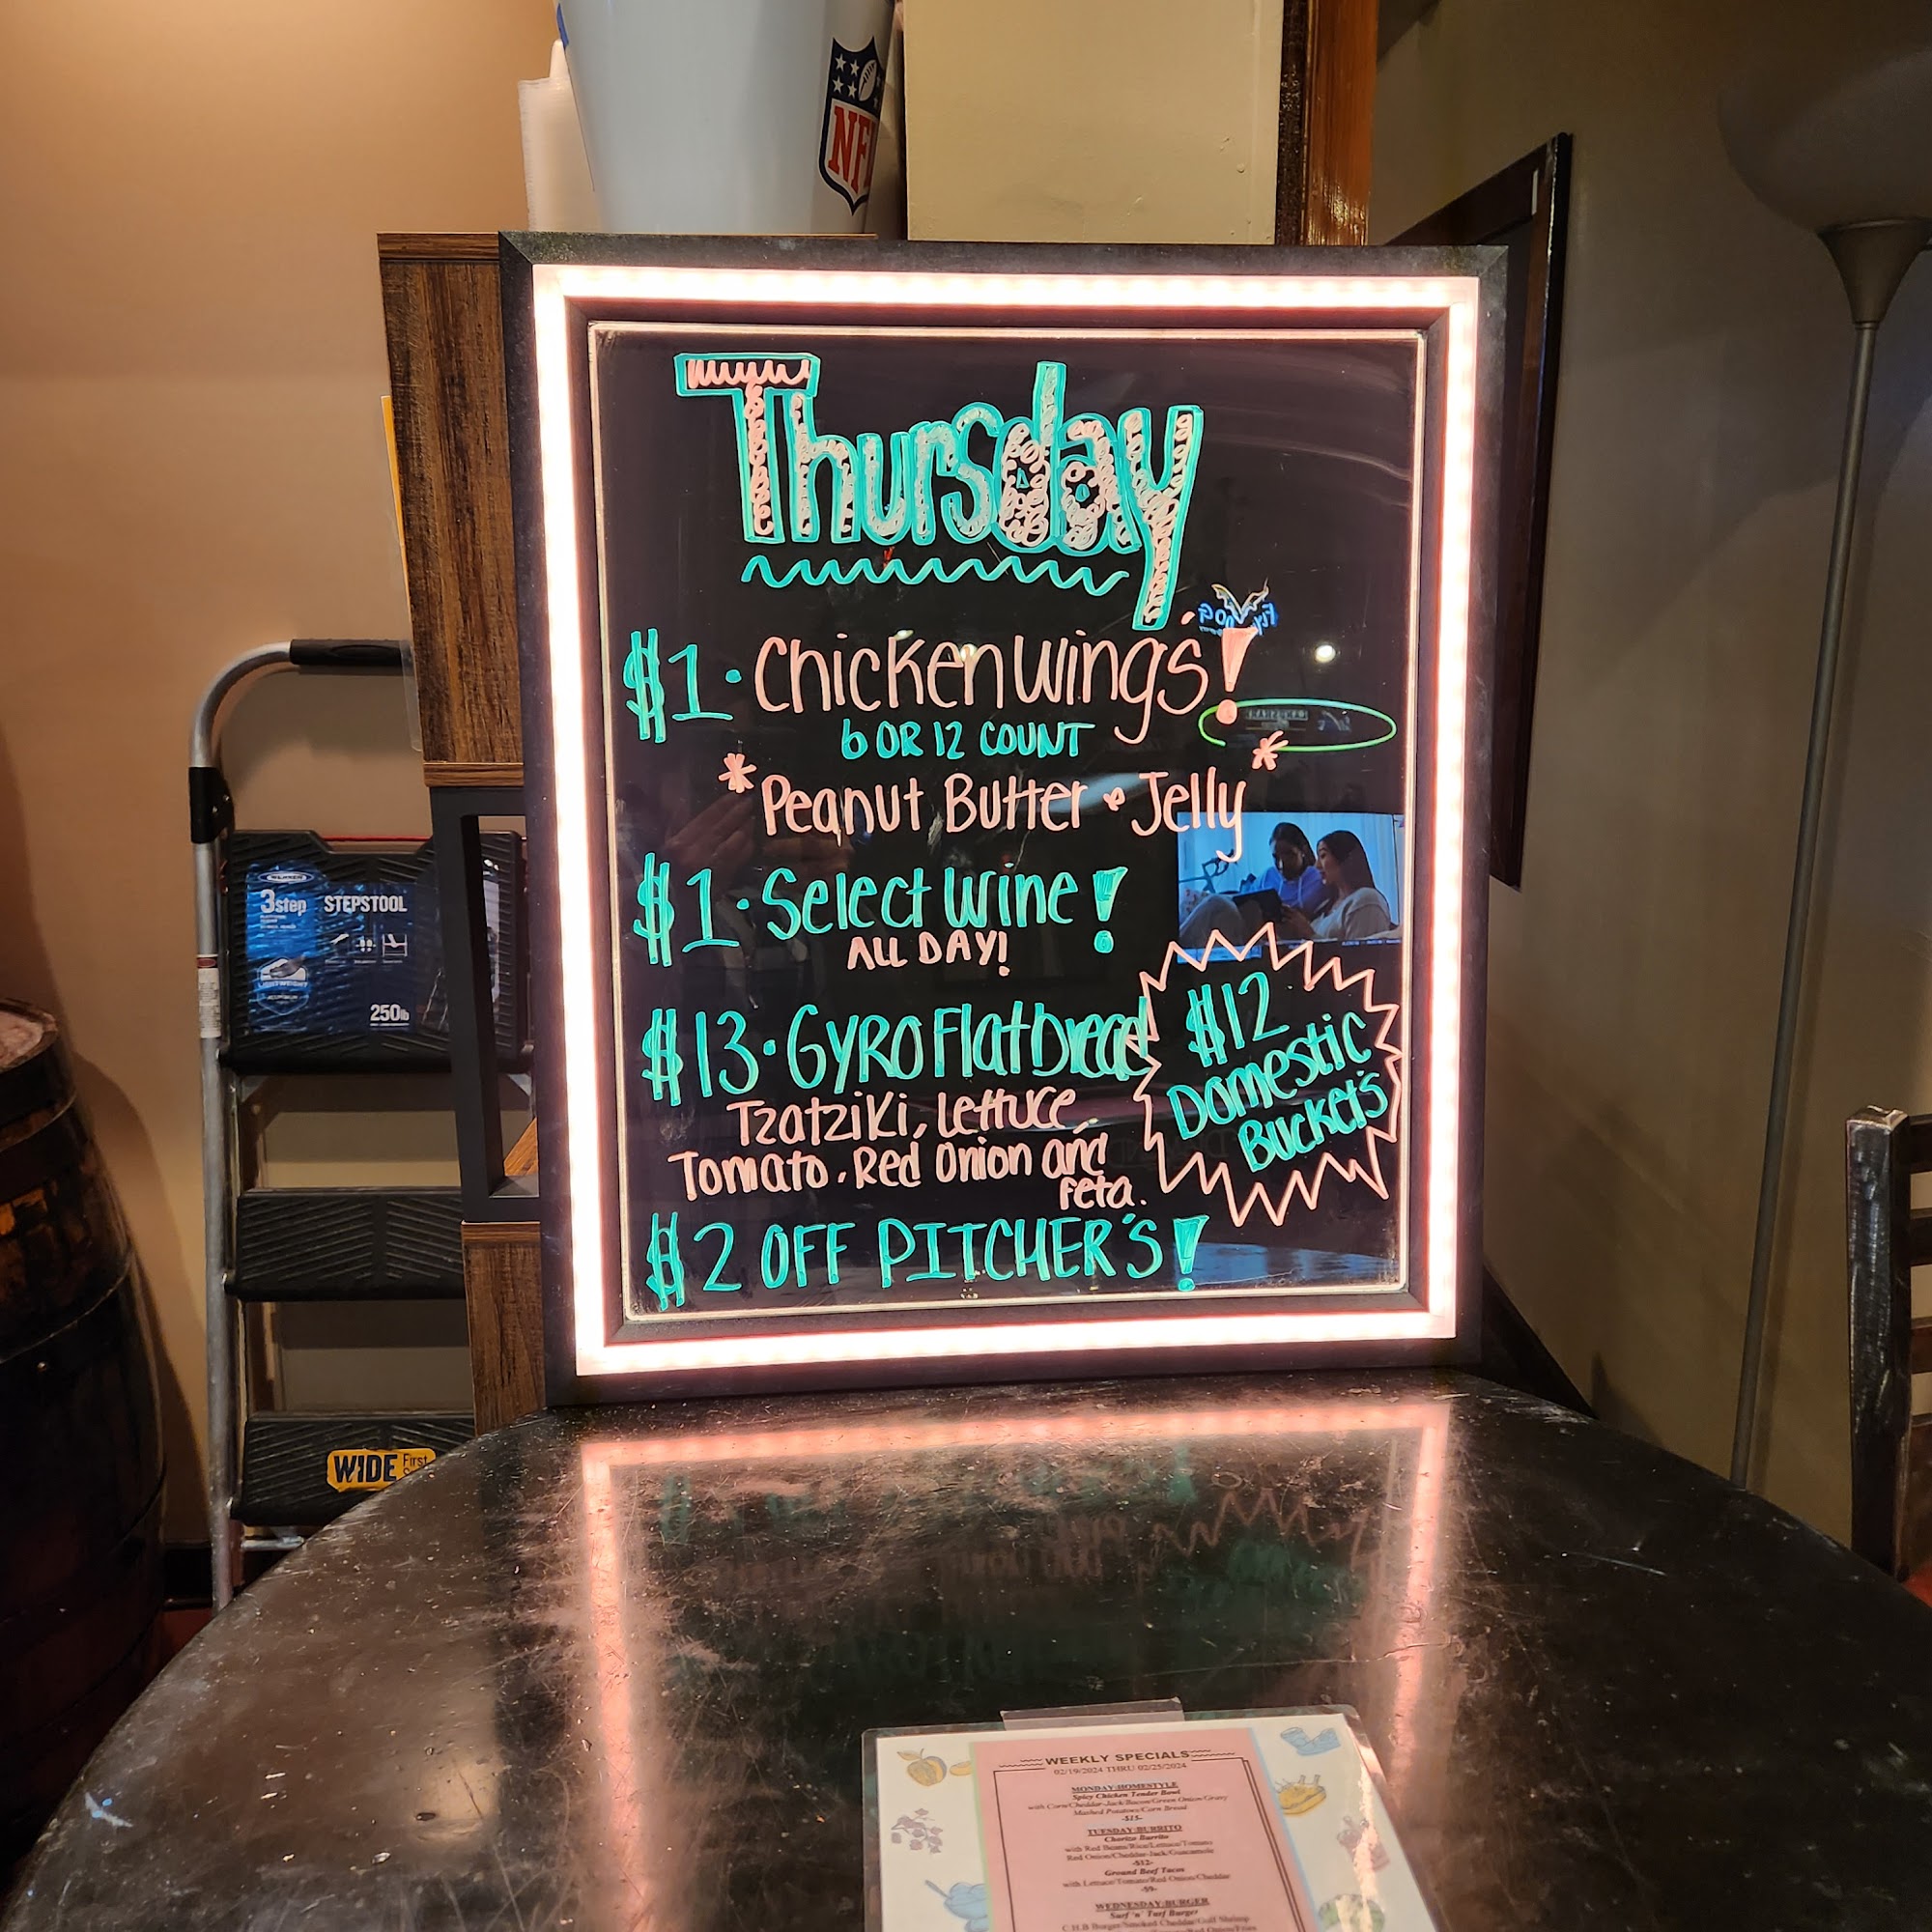 NFL
Thursday
$1 · Chicken Wing's!
6 OR 12 COUNT
*Peanut Butter & Jelly*
$1 · Select Wine!
ALL DAY!
$13 · Gyro Flatbread
Tzatziki, Lettuce,
Tomato, Red Onion and
Feta.
$12
Domestic
Bucket's
$2 OFF PITCHER'S!
WERNER
3step STEPSTOOL
LIGHTWEIGHT
250lb
WIDE First
WEEKLY SPECIALS
02/19/2024 THRU 02/25/2024
MONDAY:HOMESTYLE
Spicy Chicken Tender Bowl
with Corn/Cheddar-Jack/Bacon/Green Onion/Gravy
Mashed Potatoes/Corn Bread
-$15-
TUESDAY:BURRITO
Chorizo Burrito
with Red Beans/Rice/Lettuce/Tomato
Red Onion/Cheddar-Jack/Guacamole
-$12-
Ground Beef Tacos
with Lettuce/Tomato/Red Onion/Cheddar
-$9-
WEDNESDAY:BURGER
Surf 'n' Turf Burger
C.H.B Burger/Smoked Cheddar/Gulf Shrimp